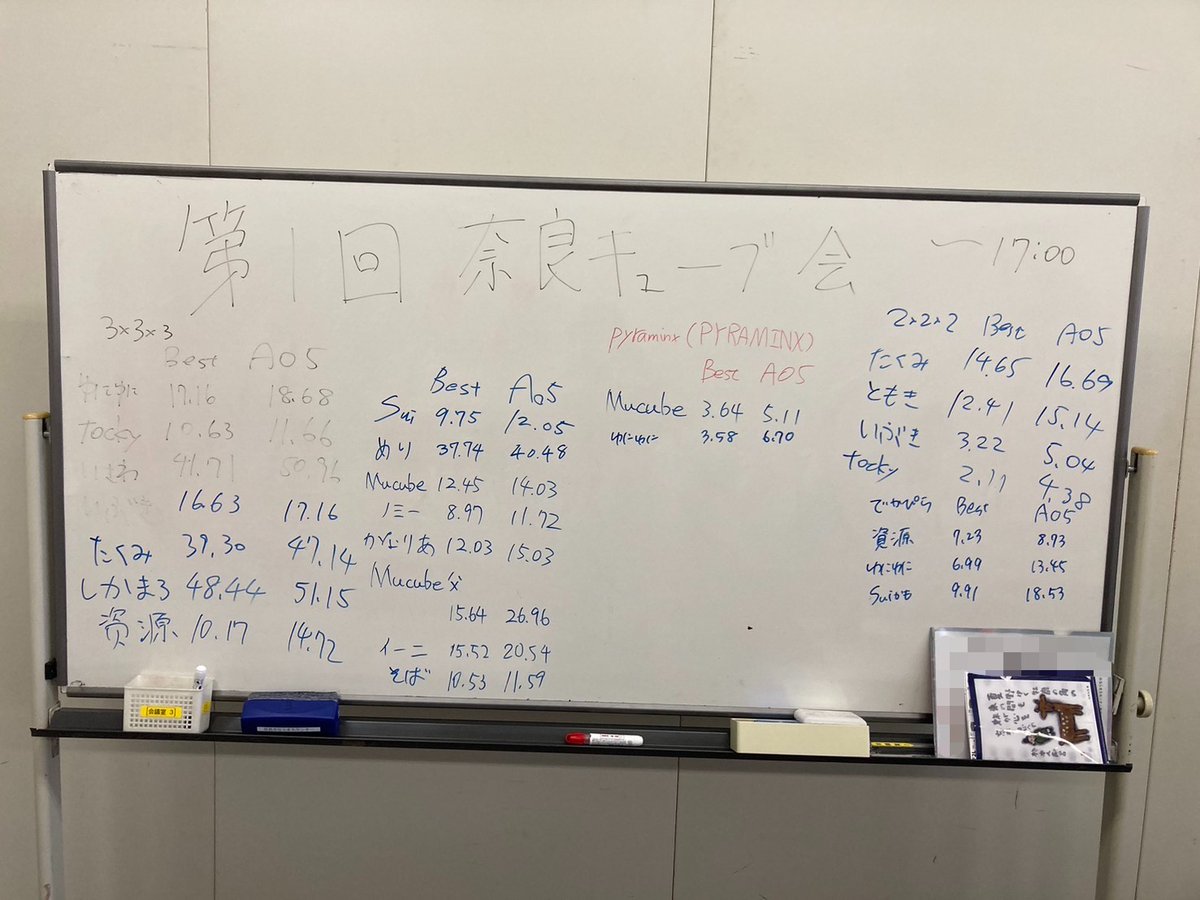 第1回 奈良キューブ会 〜17:00
3×3×3
Best AO5
ゆにゆに 17.16 18.68
Tocky 10.63 11.66
41.71 50.96
16.63 17.16
たくみ 39.30 47.14
しかまろ 48.44 51.15
資源 10.17 14.72
Best Ao5
Sui 9.75 12.05
めり 37.74 40.48
Mucube 12.45 14.03
ノミー 8.97 11.72
12.03 15.03
Mucube父
15.64 26.96
イーニ 15.52 20.54
そば 10.53 11.59
pyraminx (PYRAMINX)
Best AO5
Mucube 3.64 5.11
ゆにゆに 3.58 6.70
2×2×2 Best AO5
たくみ 14.65 16.69
ともき 12.41 15.14
いぶき 3.22 5.04
Tocky 2.11 4.38
でかぴら Best AO5
資源 7.23 8.93
ゆにゆに 6.99 13.45
Suiかも 9.91 18.53
会議室 3